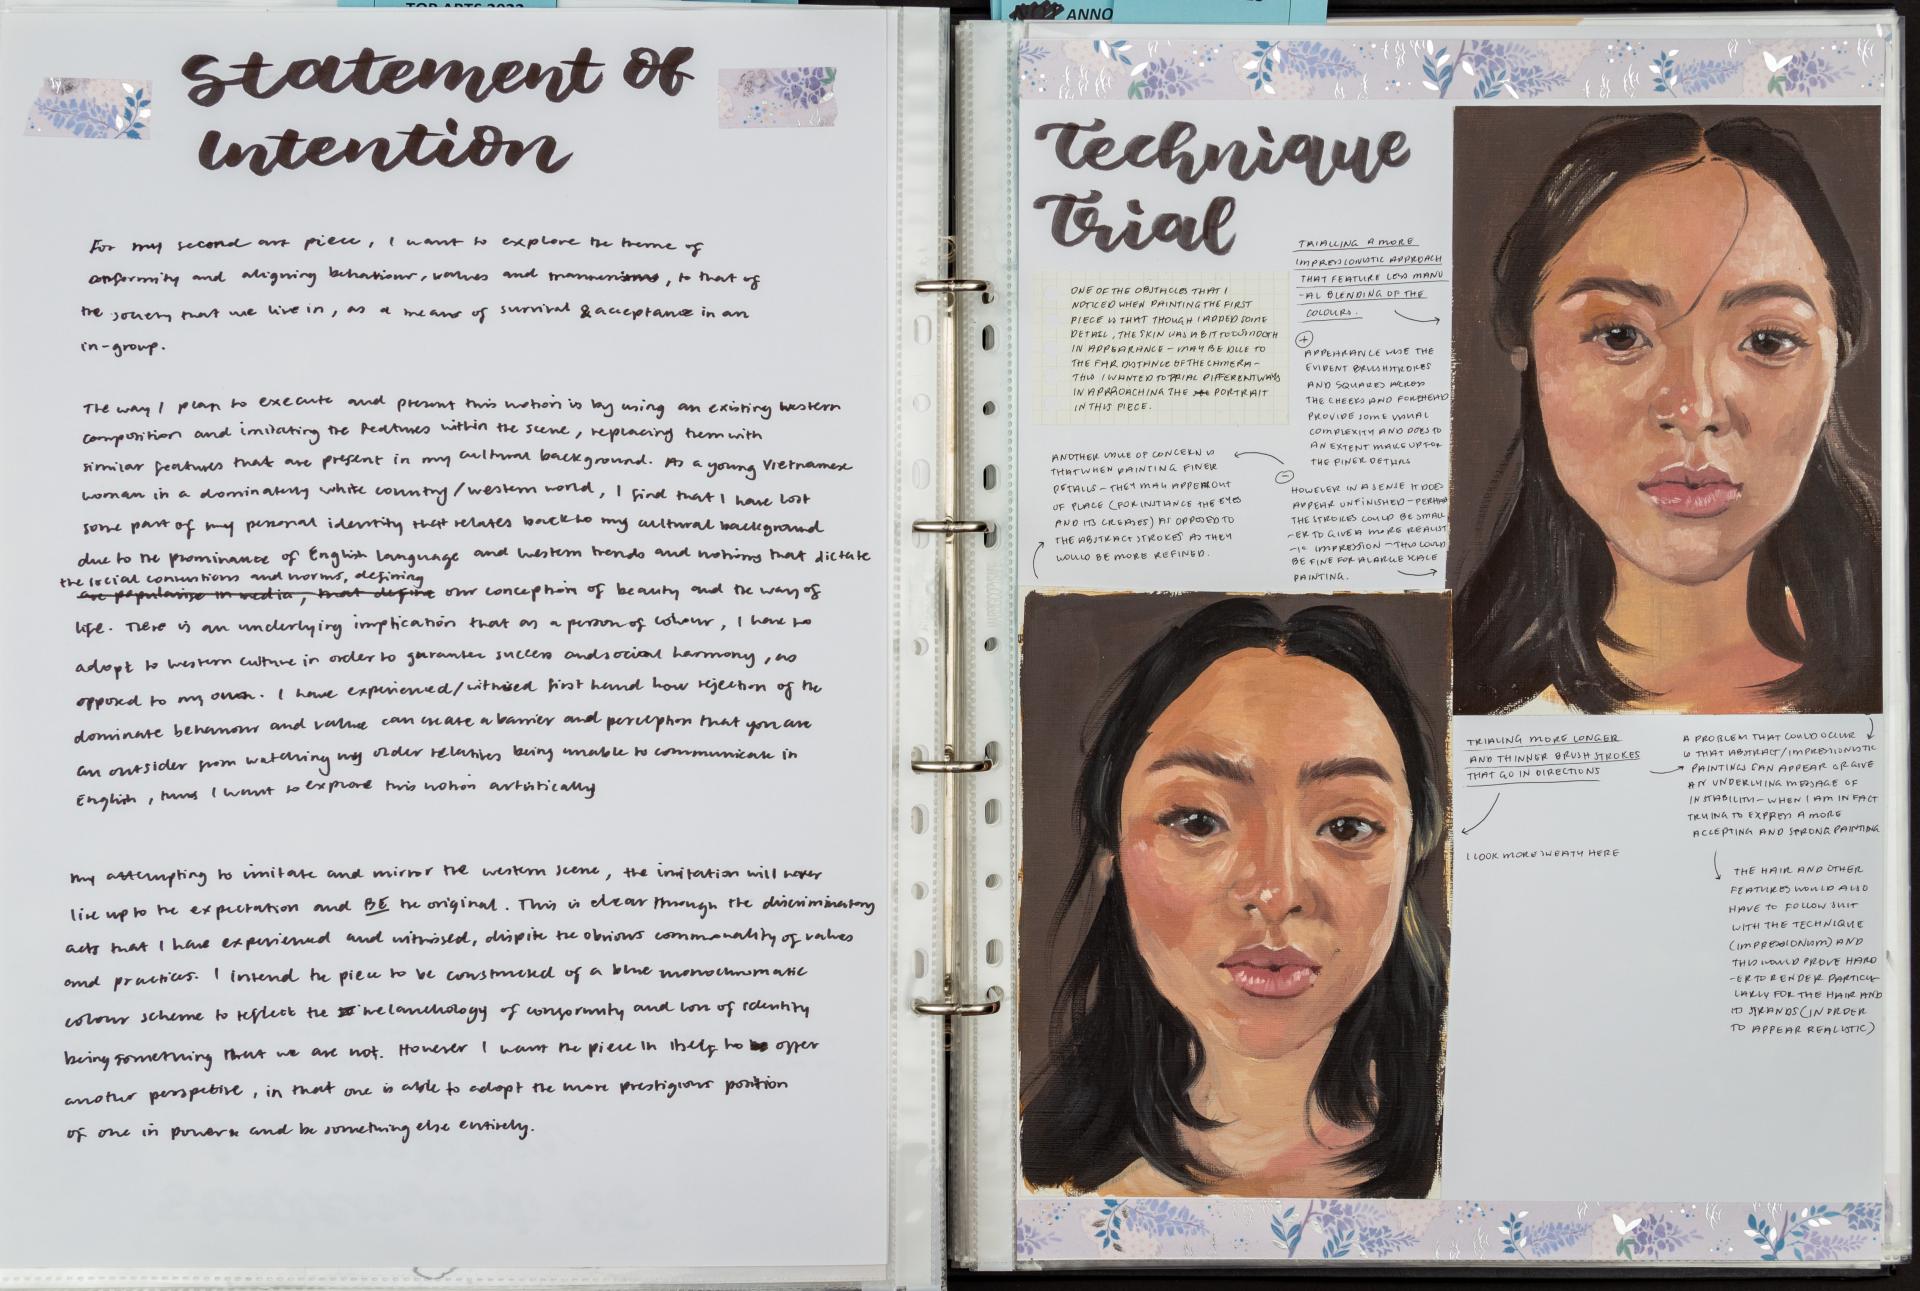 TOP ARTS 2022
Statement of
Intention
For my second art piece, I want to explore the theme of
conformity and aligning behaviour, values and mannerisms, to that of
the society that we live in, as a means of survival & acceptance in an
in-group.
The way I plan to execute and present this notion is by using an existing western
composition and imitating the features within the scene, replacing them with
similar features that are present in my cultural background. As a young Vietnamese
woman in a dominately white country/western world, I find that I have lost
some part of my personal identity that relates back to my cultural background
due to the prominance of English language and western trends and notions that dictate
the social conventions and norms, defining
are popularise in media, that define our conception of beauty and the way of
life. There is an underlying implication that as a person of colour, I have to
adopt to western culture in order to garantee success and social harmony, as
opposed to my own. I have experienced/witnissed first hand how rejection of the
dominate behaviour and value can create a barrier and perception that you are
an outsider from watching my older relatives being unable to communicate in
English, thus I want to explore this notion artistically
My attempting to imitate and mirror the western scene, the imitation will never
live up to the expectation and BE the original. This is clear through the discriminatory
acts that I have experienced and witnissed, dispite the obvious commonality of values
and practices. I intend the piece to be constructed of a blue monochromatic
colour scheme to reflect the melanchology of conformity and loss of identity
being something that we are not. However I want the piece in itself to offer
another perspective, in that one is able to adopt the more prestigious position
of one in power and be something else entirely.
ANNO
Technique
Trial
ONE OF THE OBSTACLES THAT I
NOTICED WHEN PAINTING THE FIRST
PIECE IS THAT THOUGH I ADDED SOME
DETAIL, THE SKIN WAS A BIT TOO SMOOTH
IN APPEARANCE - MAY BE DUE TO
THE FAR DISTANCE OF THE CAMERA -
THUS I WANTED TO TRIAL DIFFERENT WAYS
IN APPROACHING THE PORTRAIT
IN THIS PIECE.
TRIALLING A MORE
IMPRESSIONISTIC APPROACH
THAT FEATURE LESS MANU
-AL BLENDING OF THE
COLOURS.
+
APPEARANCE WISE THE
EVIDENT BRUSHSTROKES
AND SQUARES ACROSS
THE CHEEKS AND FOREHEAD
PROVIDE SOME VISUAL
COMPLEXITY AND DOES TO
AN EXTENT MAKE UP FOR
THE FINER DETAILS
-
HOWEVER IN A SENSE IT DOES
APPEAR UNFINISHED - PERHAP
THE STROKES COULD BE SMALL
-ER TO GIVE A MORE REALIST
-IC IMPRESSION - THIS COULD
BE FINE FOR A LARGE SCALE
PAINTING.
ANOTHER ISSUE OF CONCERN IS
THAT WHEN PAINTING FINER
DETAILS - THEY MAY APPEAR OUT
OF PLACE (FOR INSTANCE THE EYES
AND ITS CREASES) AS OPPOSED TO
THE ABSTRACT STROKES AS THEY
WOULD BE MORE REFINED.
TRIALING MORE LONGER
AND THINNER BRUSH STROKES
THAT GO IN DIRECTIONS
I LOOK MORE SWEATY HERE
A PROBLEM THAT COULD OCCUR
IS THAT ABSTRACT/IMPRESSIONISTIC
PAINTINGS CAN APPEAR OR GIVE
AN UNDERLYING MESSAGE OF
INSTABILITY - WHEN I AM IN FACT
TRYING TO EXPRESS A MORE
ACCEPTING AND STRONG PAINTING
THE HAIR AND OTHER
FEATURES WOULD ALSO
HAVE TO FOLLOW SUIT
WITH THE TECHNIQUE
(IMPRESSIONISM) AND
THIS WOULD PROVE HARD
-ER TO RENDER PARTICU
LARLY FOR THE HAIR AND
ITS STRANDS (IN ORDER
TO APPEAR REALISTIC)